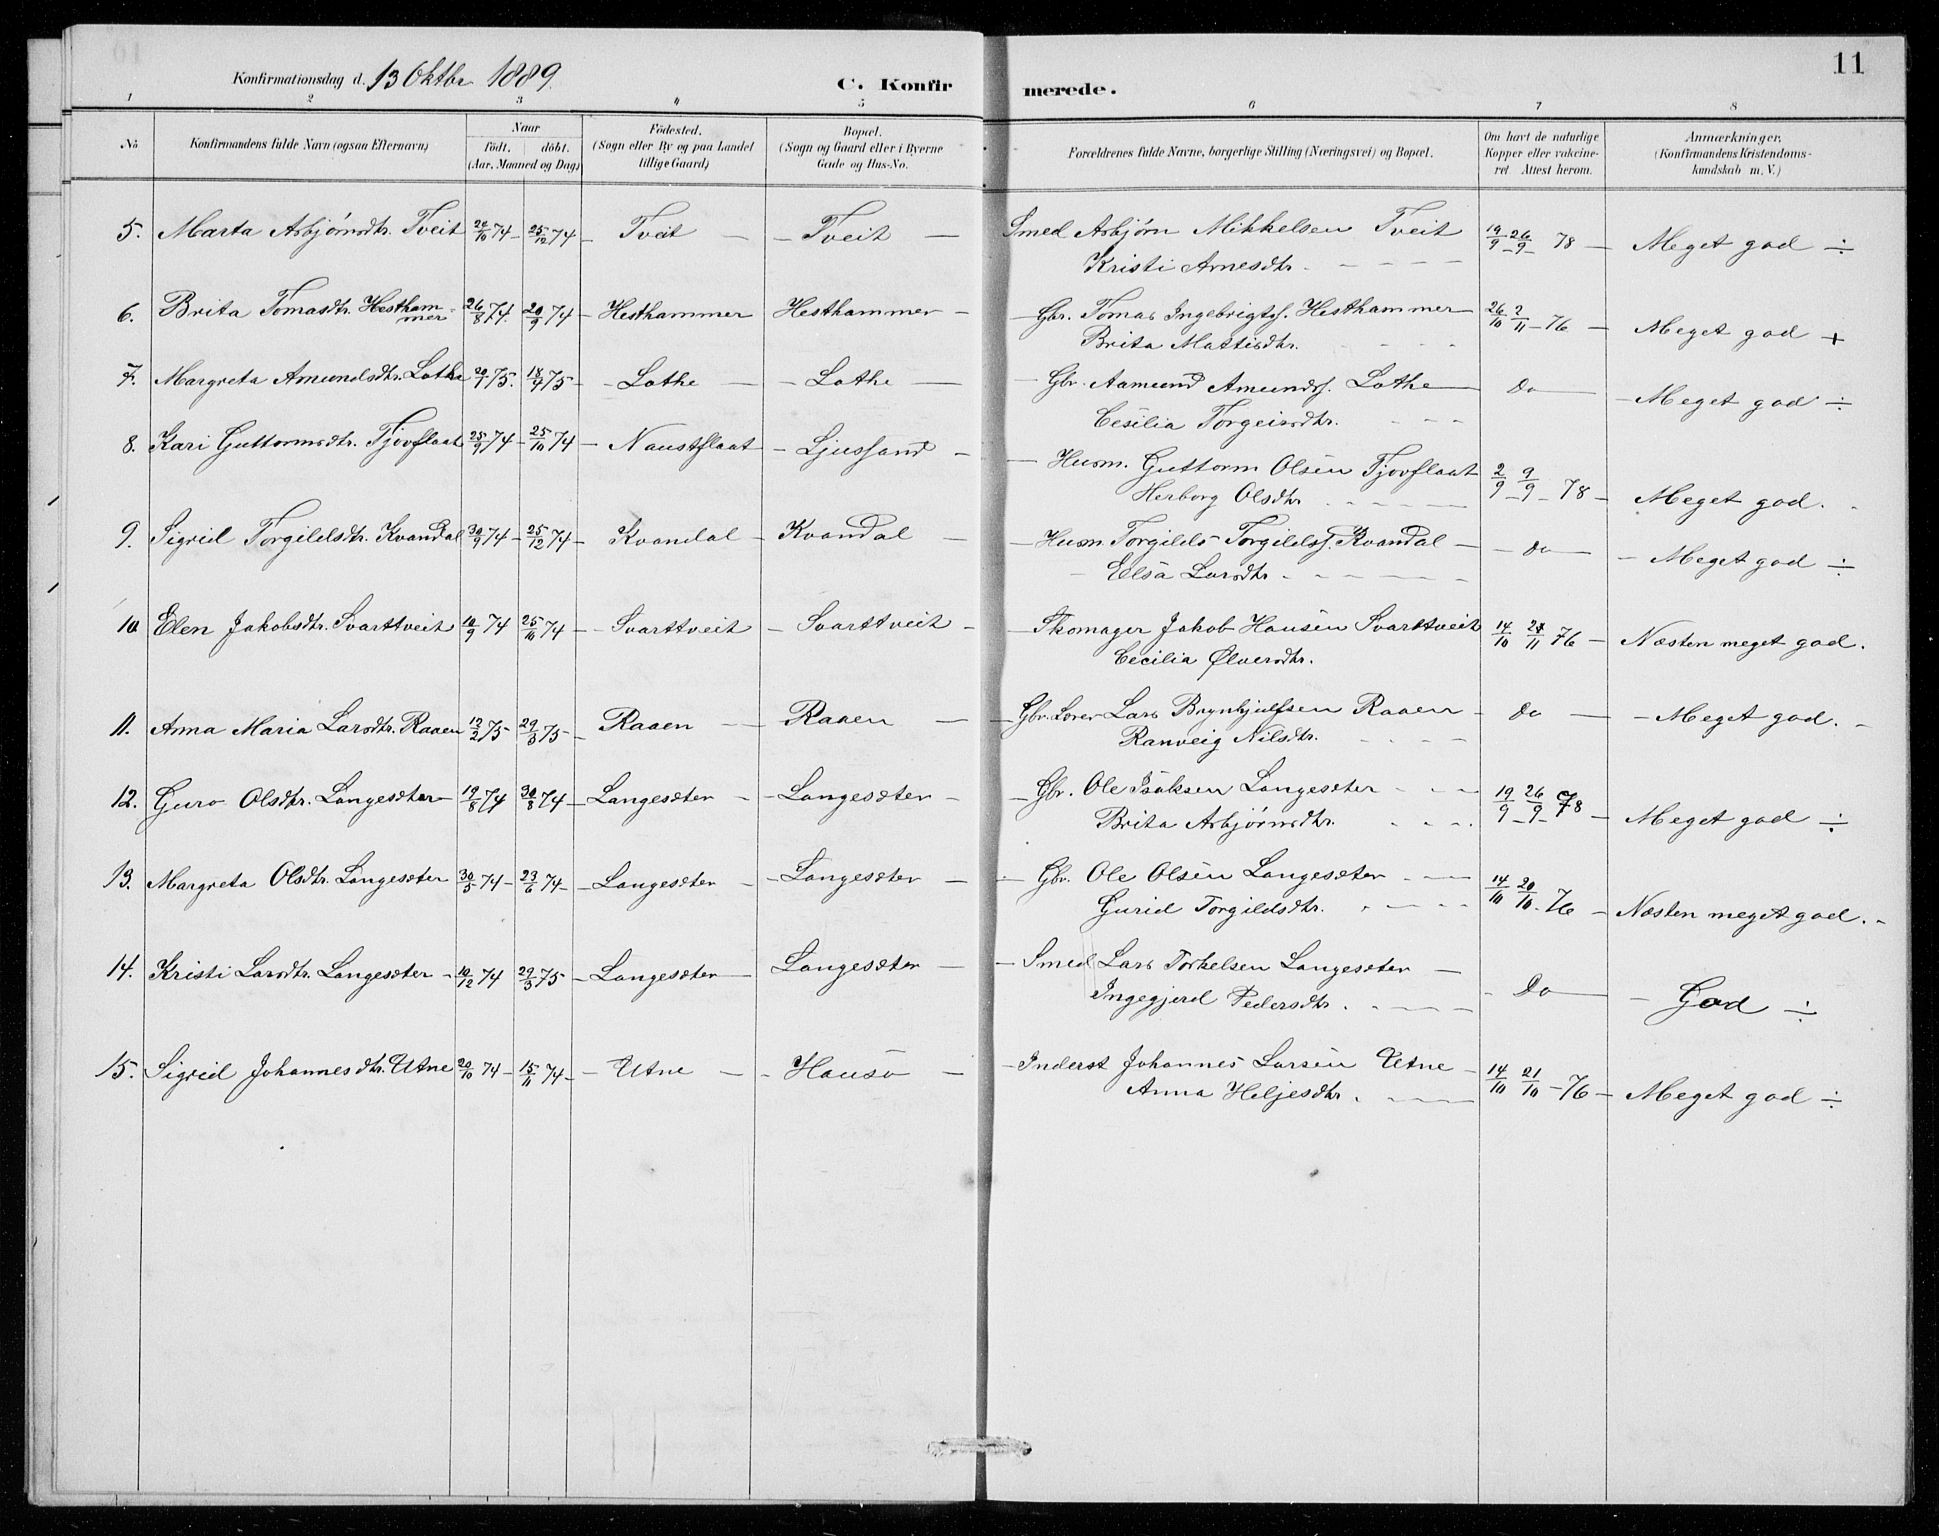 11
Konfirmationsdag d. 13 Oktbr 1889.
C. Konfirmerede.
1 2 3 4 5 6 7 8
No. Konfirmandens fulde Navn (ogsaa Efternavn) Naar födt. döbt. (Aar, Maaned og Dag) Födested. (Sogn eller By og paa Landet tillige Gaard) Bopæl. (Sogn og Gaard eller i Byerne Gade og Hus-No. Forældrenes fulde Navne, borgerlige Stilling (Næringsvei) og Bopæl. Om havt de naturlige Kopper eller vakcineret. Attest herom. Anmærkninger. (Konfirmandens Kristendomskundskab m. V.)
5. Marta Asbjörnsdtr. Tveit 20/10 74 – 25/12 74 – Tveit – – Tveit – Smed Asbjørn Mikkelsen Tveit 19/9 – 26/9 – 78 – Meget god ÷
Kristi Arnesdtr.
6. Brita Tomasdtr. Hesthammer 26/8 74. 20/9 74 – Hesthammer Hesthammer – – Gbr. Tomas Ingebrigts. Hesthammer 26/10 2/11 – 76 – Meget god +
Brita Mattisdtr.
7. Margreta Amundsdtr. Lothe 20/1 75. 18/4 75 – – Lothe – – Lothe – – Gbr. Aamund Amunds. Lothe Do – Meget god ÷
Cesilia Torgeirsdtr.
8. Kari Guttormsdtr. Tjovflaat 25/9 74 – 25/10 74 – Naustflaat – Ljussand – – Husm. Guttorm Olsen Tjovflaat 2/9 – 9/9 – 78 – Meget god.
Herborg Olsdtr
9. Sigrid Torgildsdtr. Kvandal 30/9 74 – 25/12 74 – Kvandal – Kvandal – – Husm. Torgilds Torgildss. Kvandal – – Do – – Meget god ÷
Elsa Larsdtr.
10 Elen Jakobsdtr. Svarttveit 10/9 74 25/10 74 – – Svarttveit – Svarttveit – – Skomager Jakob Hansen Svarttveit 14/10 21/11 76 – Næsten meget god.
Cecilia Ølversdtr.
11. Anna Maria Larsdtr. Raaen 12/2 75 – 29/3 75 – Raaen – Raaen – – Gbr. Lars Brynhjulfsen Raaen – Do – – Meget god. –
Ranveig Nilsdtr.
12. Guro Olsdtr. Langesæter 19/8 74 30/8 74 – Langesæter – – Langesæter – – Gbr. Ole Isaksen Langesæter 19/9 – 26/9 – 78 – Meget god ÷
Brita Asbjörnsdtr.
13. Margreta Olsdtr. Langesæter 30/5 74 – 23/6 74 – – Langesæter – – Langesæter – – Gbr. Ole Olsen Langesæter 14/10 20/10 – 76 – Næsten meget god. –
Gurid Torgildsdtr.
14. Kristi Larsdtr. Langesæter – 10/12 74 29/3 75 – Langesæter – Langesæter – – Smed Lars Torkelsen Langesæter – – Do – – God ÷
Ingegjerd Pedersdtr.
15. Sigrid Johannesdtr. Utne 20/10 74 – 15/11 74 – – Utne – – Hauso – – Inderst Johannes Larsen Utne – 14/10 21/10 – 76 – Meget god ÷
Anna Heljesdtr.